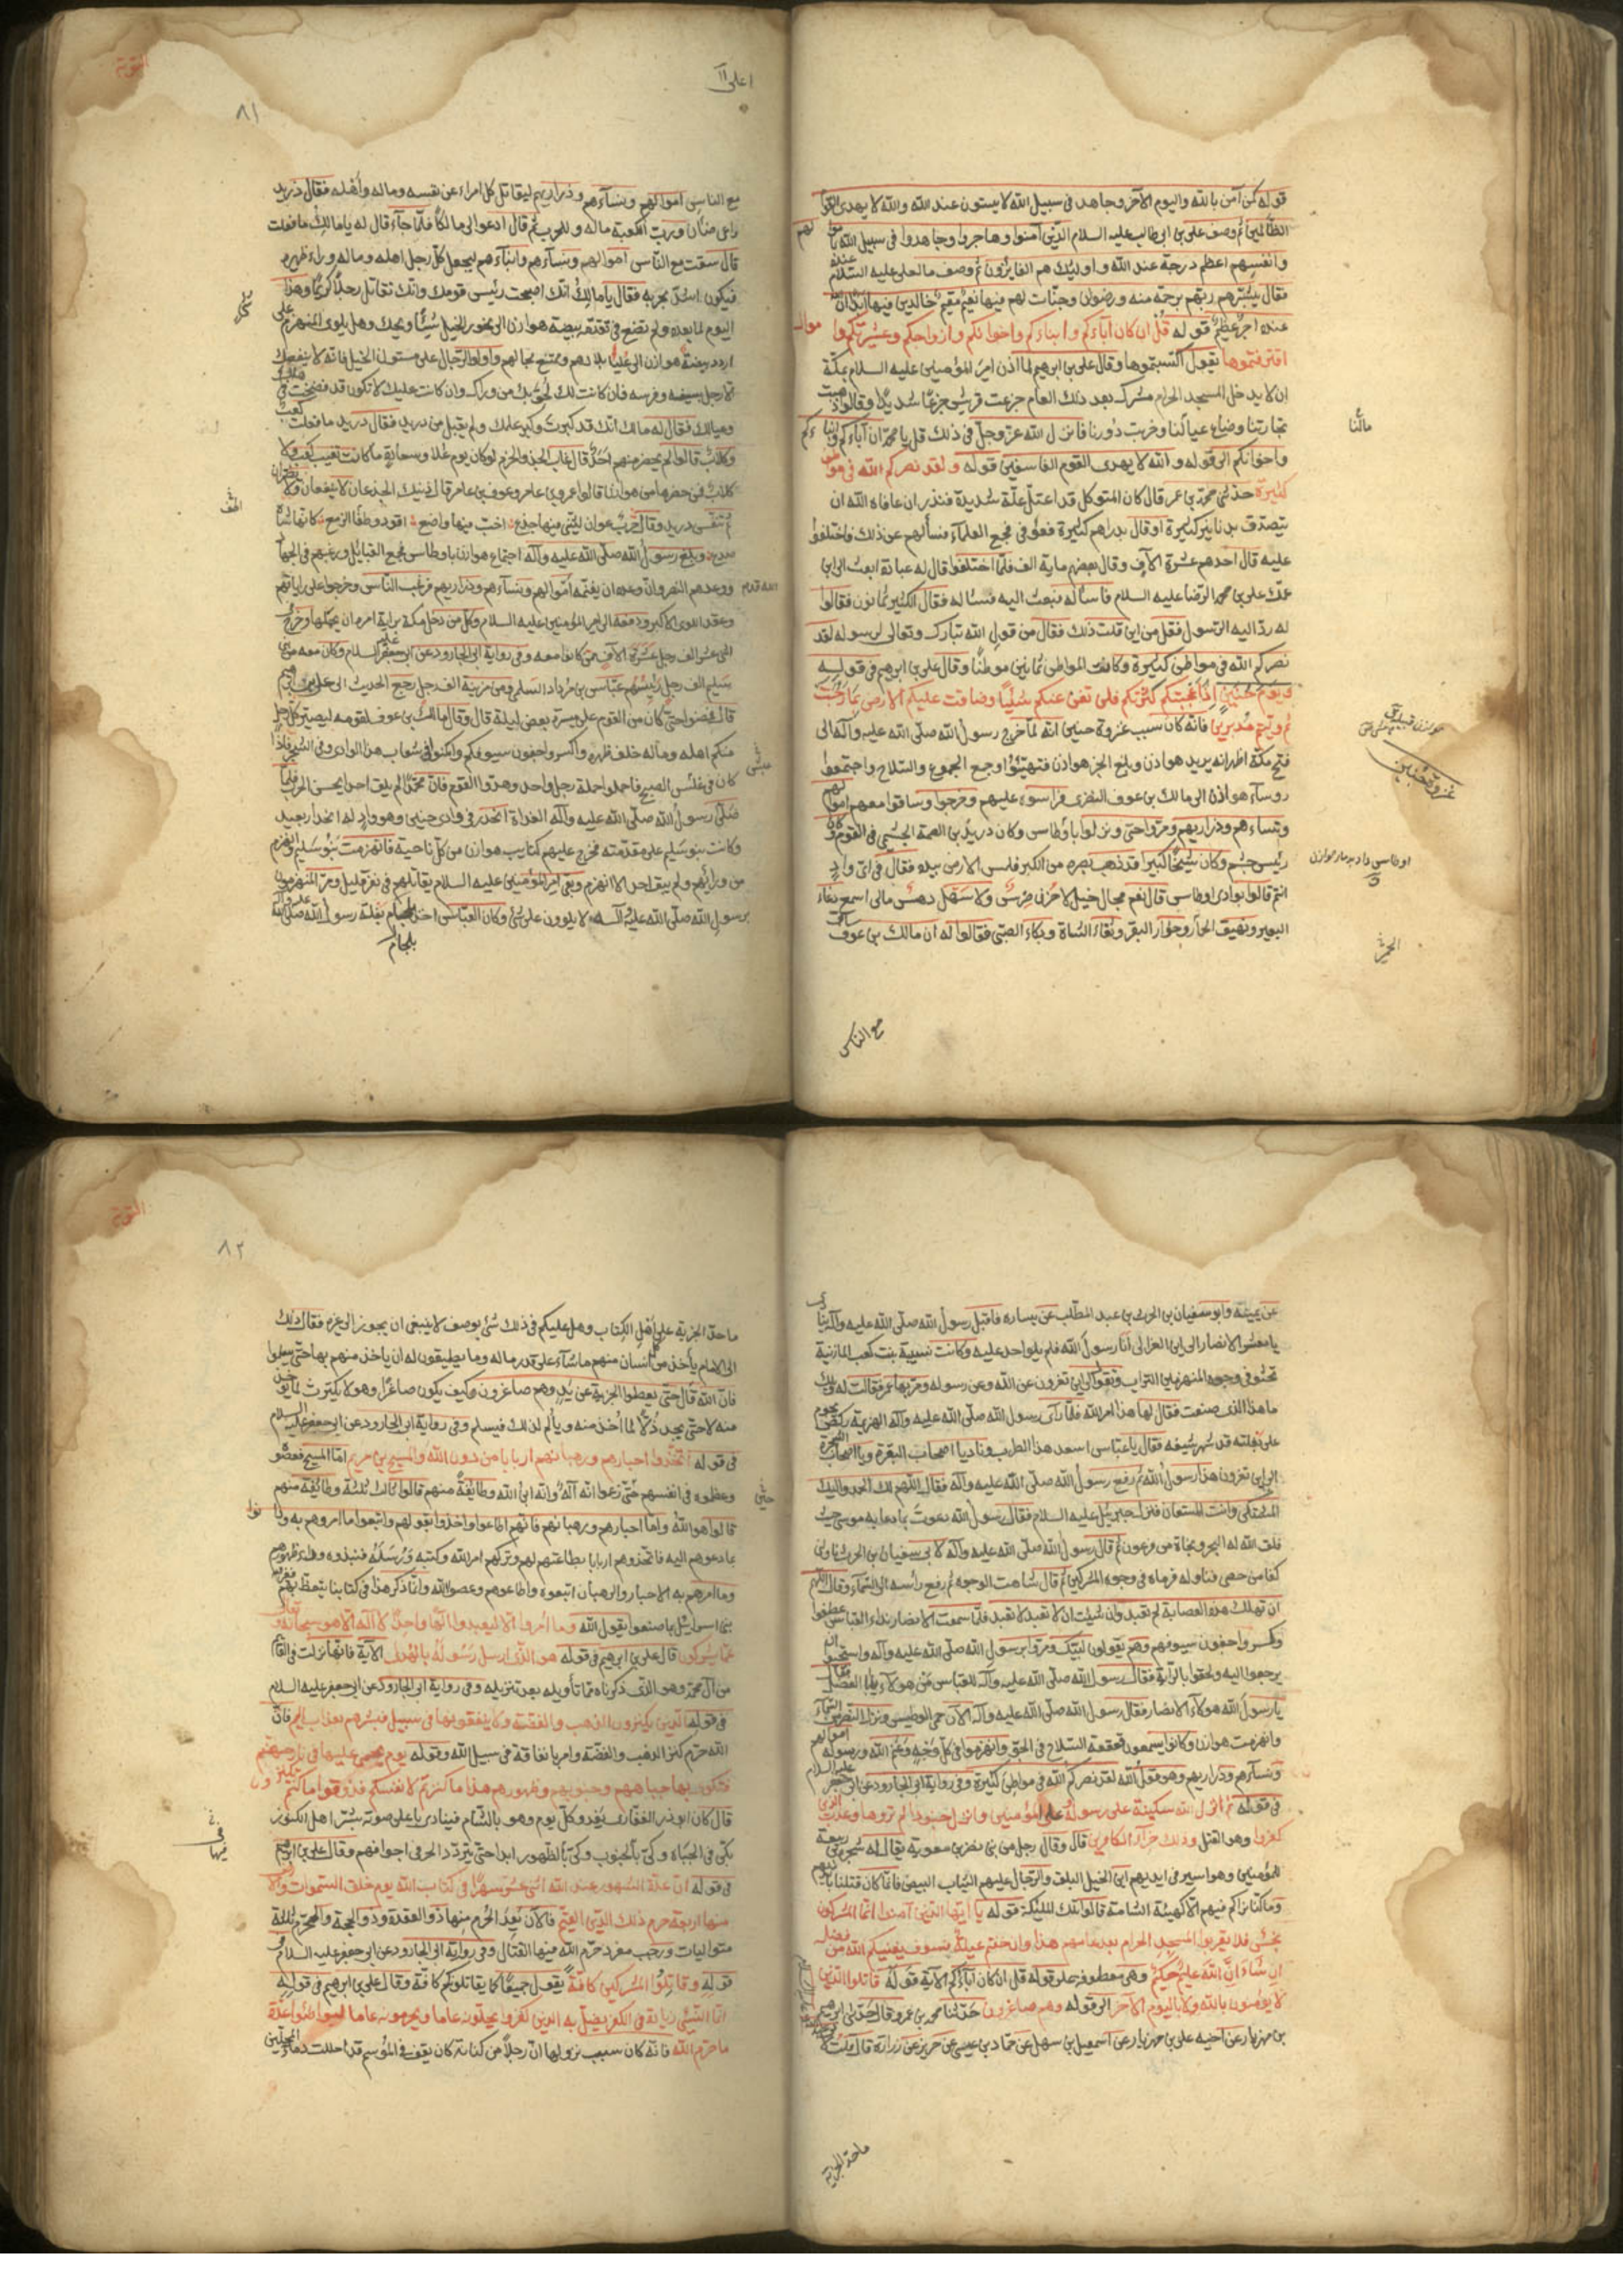 قوله كمن آمن بالله واليوم الآخر وجاهد فى سبيل الله لا يستون عند الله والله لا يهدى القوم
الظالمين ثم وصف على بن ابى طالب عليه السلام الذين آمنوا وهاجروا وجاهدوا فى سبيل الله
وانفسهم اعظم درجة عند الله واولئك هم الفايزون ثم وصف ما لعلى عليه السلام عنده
فقال يبشرهم ربهم برحمة منه ورضوان وجنات لهم فيها نعيم مقيم خالدين فيها ابدا ان الله
عنده اجر عظيم قوله قل ان كان آباءكم وابناءكم واخوانكم وازواجكم وعشيرتكم واموال
اقترفتموها يقول اكتسبتموها وقال على بن ابرهيم لما اذن امير المؤمنين عليه السلام بمكة
ان لا يدخل المسجد الحرام مشرك بعد ذلك العام جزعت قريش جزعا شديدا وقالوا ذهبت
تجارتنا وضياع عيالنا وخربت دورنا فانزل الله عز وجل فى ذلك قل يا محمد ان كان آباءكم وابناءكم
واخوانكم الى قوله والله لا يهدى القوم الفاسقين قوله ولقد نصركم الله فى مواطن
كثيرة حدثنى محمد بن عمر قال كان المتوكل قد اعتل علة شديدة فنذر ان عافاه الله ان
يتصدق بدنانير كثيرة او قال بدراهم كثيرة فعوفى فجمع العلماء فسألهم عن ذلك فاختلفوا
عليه قال احدهم عشرة الآف وقال بعضهم ماية الف فلما اختلفوا قال له عبادة ابعث الى ابن
عمك على بن محمد الرضا عليه السلام فاسأله فبعث اليه فسأله فقال الكثير ثمانون فقالوا
له رد اليه الرسول فقل من اين قلت ذلك فقال من قول الله تبارك وتعالى لرسوله لقد
نصركم الله فى مواطن كثيرة وكانت المواطن ثمانين موطنا وقال على بن ابرهيم فى قوله
ويوم حنين اذ اعجبتكم كثرتكم فلن تغن عنكم شيئا وضاقت عليكم الارض بما رحبت
ثم وليتم مدبرين فانه كان سبب غزوة حنين انه لما خرج رسول الله صلى الله عليه وآله الى
فتح مكة اظهر انه يريد هوازن وبلغ الخبر هوازن فتهيئوا وجمع الجموع والسلاح واجتمعوا
روساء هوازن الى مالك بن عوف النضرى فراسوه عليهم وخرجوا وساقوا معهم اموالهم
ونساءهم وذراريهم ومروا حتى ونزلوا باوطاس وكان دريد بن الصمة الجشمى فى القوم وكان
رئيس جشم وكان شيخا كبيرا قد ذهب بصره من الكبر فلمس الارض بيده فقال فى اى واد
انتم قالوا بوادى اوطاس قال نعم مجال خيل لا حزن ضرس ولا سهل دهس مالى اسمع رغاء
البعير ونهيق الحمار وخوار البقر وثغاء الشاة وبكاء الصبى فقالوا له ان مالك بن عوف
مالنا
مع الناس
مع الناس اموالهم ونساءهم وذراريهم ليقاتل كل امراء عن نفسه وماله واهله فقال دريد
راعى ضان ورب الكعبة ماله وللحرب ثم قال ادعوا لى مالكا فلما جاءه قال له يا مالك ما فعلت
قال سقت مع الناس اموالهم ونساءهم وابناءهم ليجعل كل رجل اهله وماله وراء ظهره
فيكون اشد لحربه فقال يا مالك انك اصبحت رئيس قومك وانك تقاتل رجلا كريما وهذا
اليوم لما بعده ولم تضع فى تقدمة بيضة هوازن الى نحور الخيل شيئا ويحك وهل يلوى المنهزم على
اردد بيضة هوازن الى عليا بلادهم وممتنع محالهم والق الرجال على متون الخيل فانه لا ينفعك
الا رجل بسيفه وفرسه فان كانت لك لحق بك من وراك وان كانت عليك لا تكون قد فضحت فى اهلك
وعيالك فقال له مالك انك قد كبرت وكبر علمك ولم يقبل من دريد فقال دريد ما فعلت كعب
وكلاب قالوا لم يحضر منهم احد قال غاب الجد والحزم لو كان يوم علا وسعادة ما كانت تغيب كعب ولا
كلاب فمن حضرها من هوازن قالوا عمرو بن عامر وعوف بن عامر قال ذينك الجذعان لا ينفعان ولا يضران
ثم تنفس دريد وقال حرب عوان ليتنى فيها جذع اخب فيها واضع اقود وطفا الزمع كانها شاة
صدع وبلغ رسول الله صلى الله عليه وآله اجتماع هوازن باوطاس فجمع القبايل ورغبهم فى الجهاد
ووعدهم النصر وان الله قد وعده ان يغنمه اموالهم ونساءهم وذراريهم فرغب الناس وخرجوا على راياتهم
وعقد اللوى الاكبر ودفعه الى امير المؤمنين عليه السلام وكل من دخل مكة براية امره ان يحملها وخرج
اثنى عشر الف رجل عشرة الآف ممن كانوا معه وفى رواية ابى الجارود عن ابى جعفر عليه السلام وكان معه من بنى
سليم الف رجل رئيسهم عباس بن مرداس السلمى ومن مزينة الف رجل رجع الحديث الى على بن ابرهيم
قال فمضوا حتى كان من القوم على مسيرة بعض ليلة قال وقال مالك بن عوف لقومه ليصير كل رجل
منكم اهله وماله خلف ظهره واكسروا جفون سيوفكم واكمنوا فى شعاب هذا الوادى وفى الشجر فاذا
كان فى غلس الصبح فاحملوا حملة رجل واحد وهدوا القوم فان محمدا لم يلق احدا يحسن الحرب فلما
صلى رسول الله صلى الله عليه وآله الغداة انحدر فى وادى حنين وهو واد له انحدار بعيد
وكانت بنو سليم على مقدمته فخرج عليهم كتايب هوازن من كل ناحية فانهزمت بنو سليم وانهزم
من ورائهم ولم يبق احد الا انهزم وبقى امير المؤمنين عليه السلام يقاتلهم فى نفر قليل ومر المنهزمون
برسول الله صلى الله عليه وآله لا يلوون على شئ وكان العباس اخذ بلجام بغلة رسول الله صلى الله عليه وآله
بلجام
٨١
عن يمينه وابو سفيان بن الحرث بن عبد المطلب عن يساره فاقبل رسول الله صلى الله عليه وآله ينادى
يا معشر الانصار الى اين الفرار الى انا رسول الله فلم يلو احد عليه وكانت نسيبة بنت كعب المازنية
تحثو فى وجوه المنهزمين التراب وتقول الى اين تفرون عن الله وعن رسوله ومر بها عمر فقالت له ويلك
ما هذا الذى صنعت فقال لها هذا امر الله فلما رآى رسول الله صلى الله عليه وآله الهزيمة ركض نحوهم
على بغلته قد شهر سيفه فقال يا عباس اصعد هذا الظرب وناد يا اصحاب البقرة ويا اصحاب الشجرة
الى اين تفرون هذا رسول الله ثم رفع رسول الله صلى الله عليه وآله فقال اللهم لك الحمد واليك
المشتكى وانت المستعان فنزل جبرئيل عليه السلام فقال رسول الله دعوت بما دعا به موسى حيث
فلق الله له البحر ونجاة من فرعون ثم قال رسول الله صلى الله عليه وآله لابى سفيان بن الحرث ناولنى
كفا من حصى فناوله فرماه فى وجوه المشركين ثم قال شاهت الوجوه ثم رفع رأسه الى السماء وقال اللهم
ان تهلك هذه العصابة لم تعبد وان شئت ان لا تعبد لا تعبد فلما سمعت الانصار نداء العباس عطفوا
وكسروا جفون سيوفهم وهم يقولون لبيك ومروا برسول الله صلى الله عليه وآله واستحيوا ان
يرجعوا اليه ولحقوا بالراية فقال رسول الله صلى الله عليه وآله للعباس من هؤلاء يا ابا الفضل
يا رسول الله هؤلاء الانصار فقال رسول الله صلى الله عليه وآله الآن حمى الوطيس ونزل النصر من السماء
وانهزمت هوازن وكانوا يسمعون قعقعة السلاح فى الجو وانهزموا فى كل وجه وغنم الله ورسوله اموالهم
ونساءهم وذراريهم وهو قول الله لقد نصركم الله فى مواطن كثيرة وفى رواية ابى الجارود عن ابى جعفر عليه السلام
فى قوله ثم انزل الله سكينة على رسوله وعلى المؤمنين وانزل جنودا لم تروها وعذب الذين
كفروا وهو القتل وذلك جزاء الكافرين قال وقال رجل من بنى نضر بن معوية يقال له شجرة بن ربيعة
للمؤمنين وهو اسير فى ايديهم اين الخيل البلق والرجال عليهم الثياب البيض فانما كان قتلنا بايديهم
وما كنا نراكم فيهم الا كهيئة الشامة قالوا تلك الملئكة قوله يا ايها الذين آمنوا انما المشركون
نجس فلا يقربوا المسجد الحرام بعد عامهم هذا وان خفتم عيلة فسوف يغنيكم الله من فضله
ان شاء ان الله عليم حكيم وهى معطوفة على قوله قل ان كان آباءكم الآية قوله قاتلوا الذين
لا يؤمنون بالله ولا باليوم الآخر الى قوله وهم صاغرون حدثنا محمد بن عمرو قال حدثنى ابرهيم
بن مهزيار عن اخيه على بن مهزيار عن اسمعيل بن سهل عن حماد بن عيسى عن حريز عن زرارة قال قلت
ما حد الجزية
ما حد الجزية على اهل الكتاب وهل عليكم فى ذلك شئ يوصف لا ينبغى ان يجوز الى غيره فقال ذلك
الى الامام يأخذ من كل انسان منهم ما شاء على قدر ماله وما يطيقون له ان ياخذ منهم بها حتى يسلموا
فان الله قال حتى يعطوا الجزية عن يد وهم صاغرون وكيف يكون صاغرا وهو لا يكترث لما يوخذ
منه لا حتى يجد ذلا لما اخذ منه ويألم لذلك فيسلم وفى رواية ابى الجارود عن ابى جعفر عليه السلام
فى قوله اتخذوا احبارهم ورهبانهم اربابا من دون الله والمسيح بن مريم اما المسيح فعصوه
وعظموه فى انفسهم حتى زعموا انه آله وانه ابن الله وطايفة منهم قالوا ثالث ثلثة وطائفة منهم
قالوا هو الله واما احبارهم ورهبانهم فانهم اطاعوا واخذوا بقولهم واتبعوا ما امروهم به ودانوا
بما دعوهم اليه فاتخذوهم اربابا بطاعتهم لهم وتركهم امر الله وكتبه ورسله فنبذوه وراء ظهورهم
وما امرهم به الاحبار والرهبان اتبعوه واطاعوهم وعصوا الله وانما ذكر هذا فى كتابنا يتعظ بهم
بنى اسرائيل بما صنعوا يقول الله وما امروا الا ليعبدوا الها واحدا لا اله الا هو سبحانه وتعالى
عما يشركون قال على بن ابرهيم فى قوله هو الذى ارسل رسوله بالهدى الآية فانها نزلت فى القائم
من آل محمد وهو الذى ذكرناه مما تأويله بعد تنزيله وفى رواية ابى الجارود عن ابى جعفر عليه السلام
فى قوله الذين يكنزون الذهب والفضة ولا ينفقونها فى سبيل فبشرهم بعذاب اليم فان
الله حرم كنز الذهب والفضة وامر بانفاقه فى سبيل الله وقوله يوم يحمى عليها فى نار جهنم
فتكوى بها جباههم وجنوبهم وظهورهم هذا ما كنزتم لانفسكم فذوقوا ما كنتم تكنزون
قال كان ابو ذر الغفارى يغدو كل يوم وهو بالشام فينادى باعلى صوته بشر اهل الكنوز
بكى فى الجباه وكى بالجنوب وكى بالظهور ابدا حتى يتردد الحر فى اجوافهم وقال على بن ابرهيم
فى قوله ان عدة الشهور عند الله اثنى عشر شهرا فى كتاب الله يوم خلق السموات والارض
منها اربعة حرم ذلك الدين القيم فالآن يعد الحرم منها ذو القعدة وذو الحجة والمحرم ثلثة
متواليات ورجب مفرد حرم الله فيها القتال وفى رواية ابى الجارود عن ابى جعفر عليه السلام فى
قوله وقاتلوا المشركين كافة يقول جميعا كما يقاتلونكم كافة وقال على بن ابرهيم فى قوله
انما النسئ زيادة فى الكفر يضل به الذين كفروا يحلونه عاما ويحرمونه عاما ليواطئوا عدة
ما حرم الله فانه كان سبب نزولها ان رجلا من كنانة كان يقف فى الموسم قد احللت دماء المحلين
٨٢